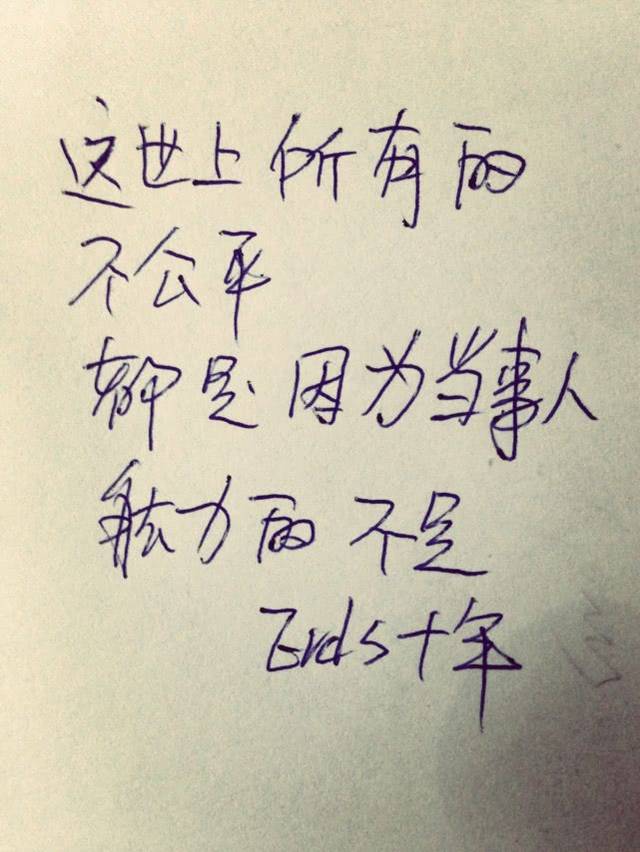 这世上所有的
不公平
都是因为当事人
能力的不足
十年